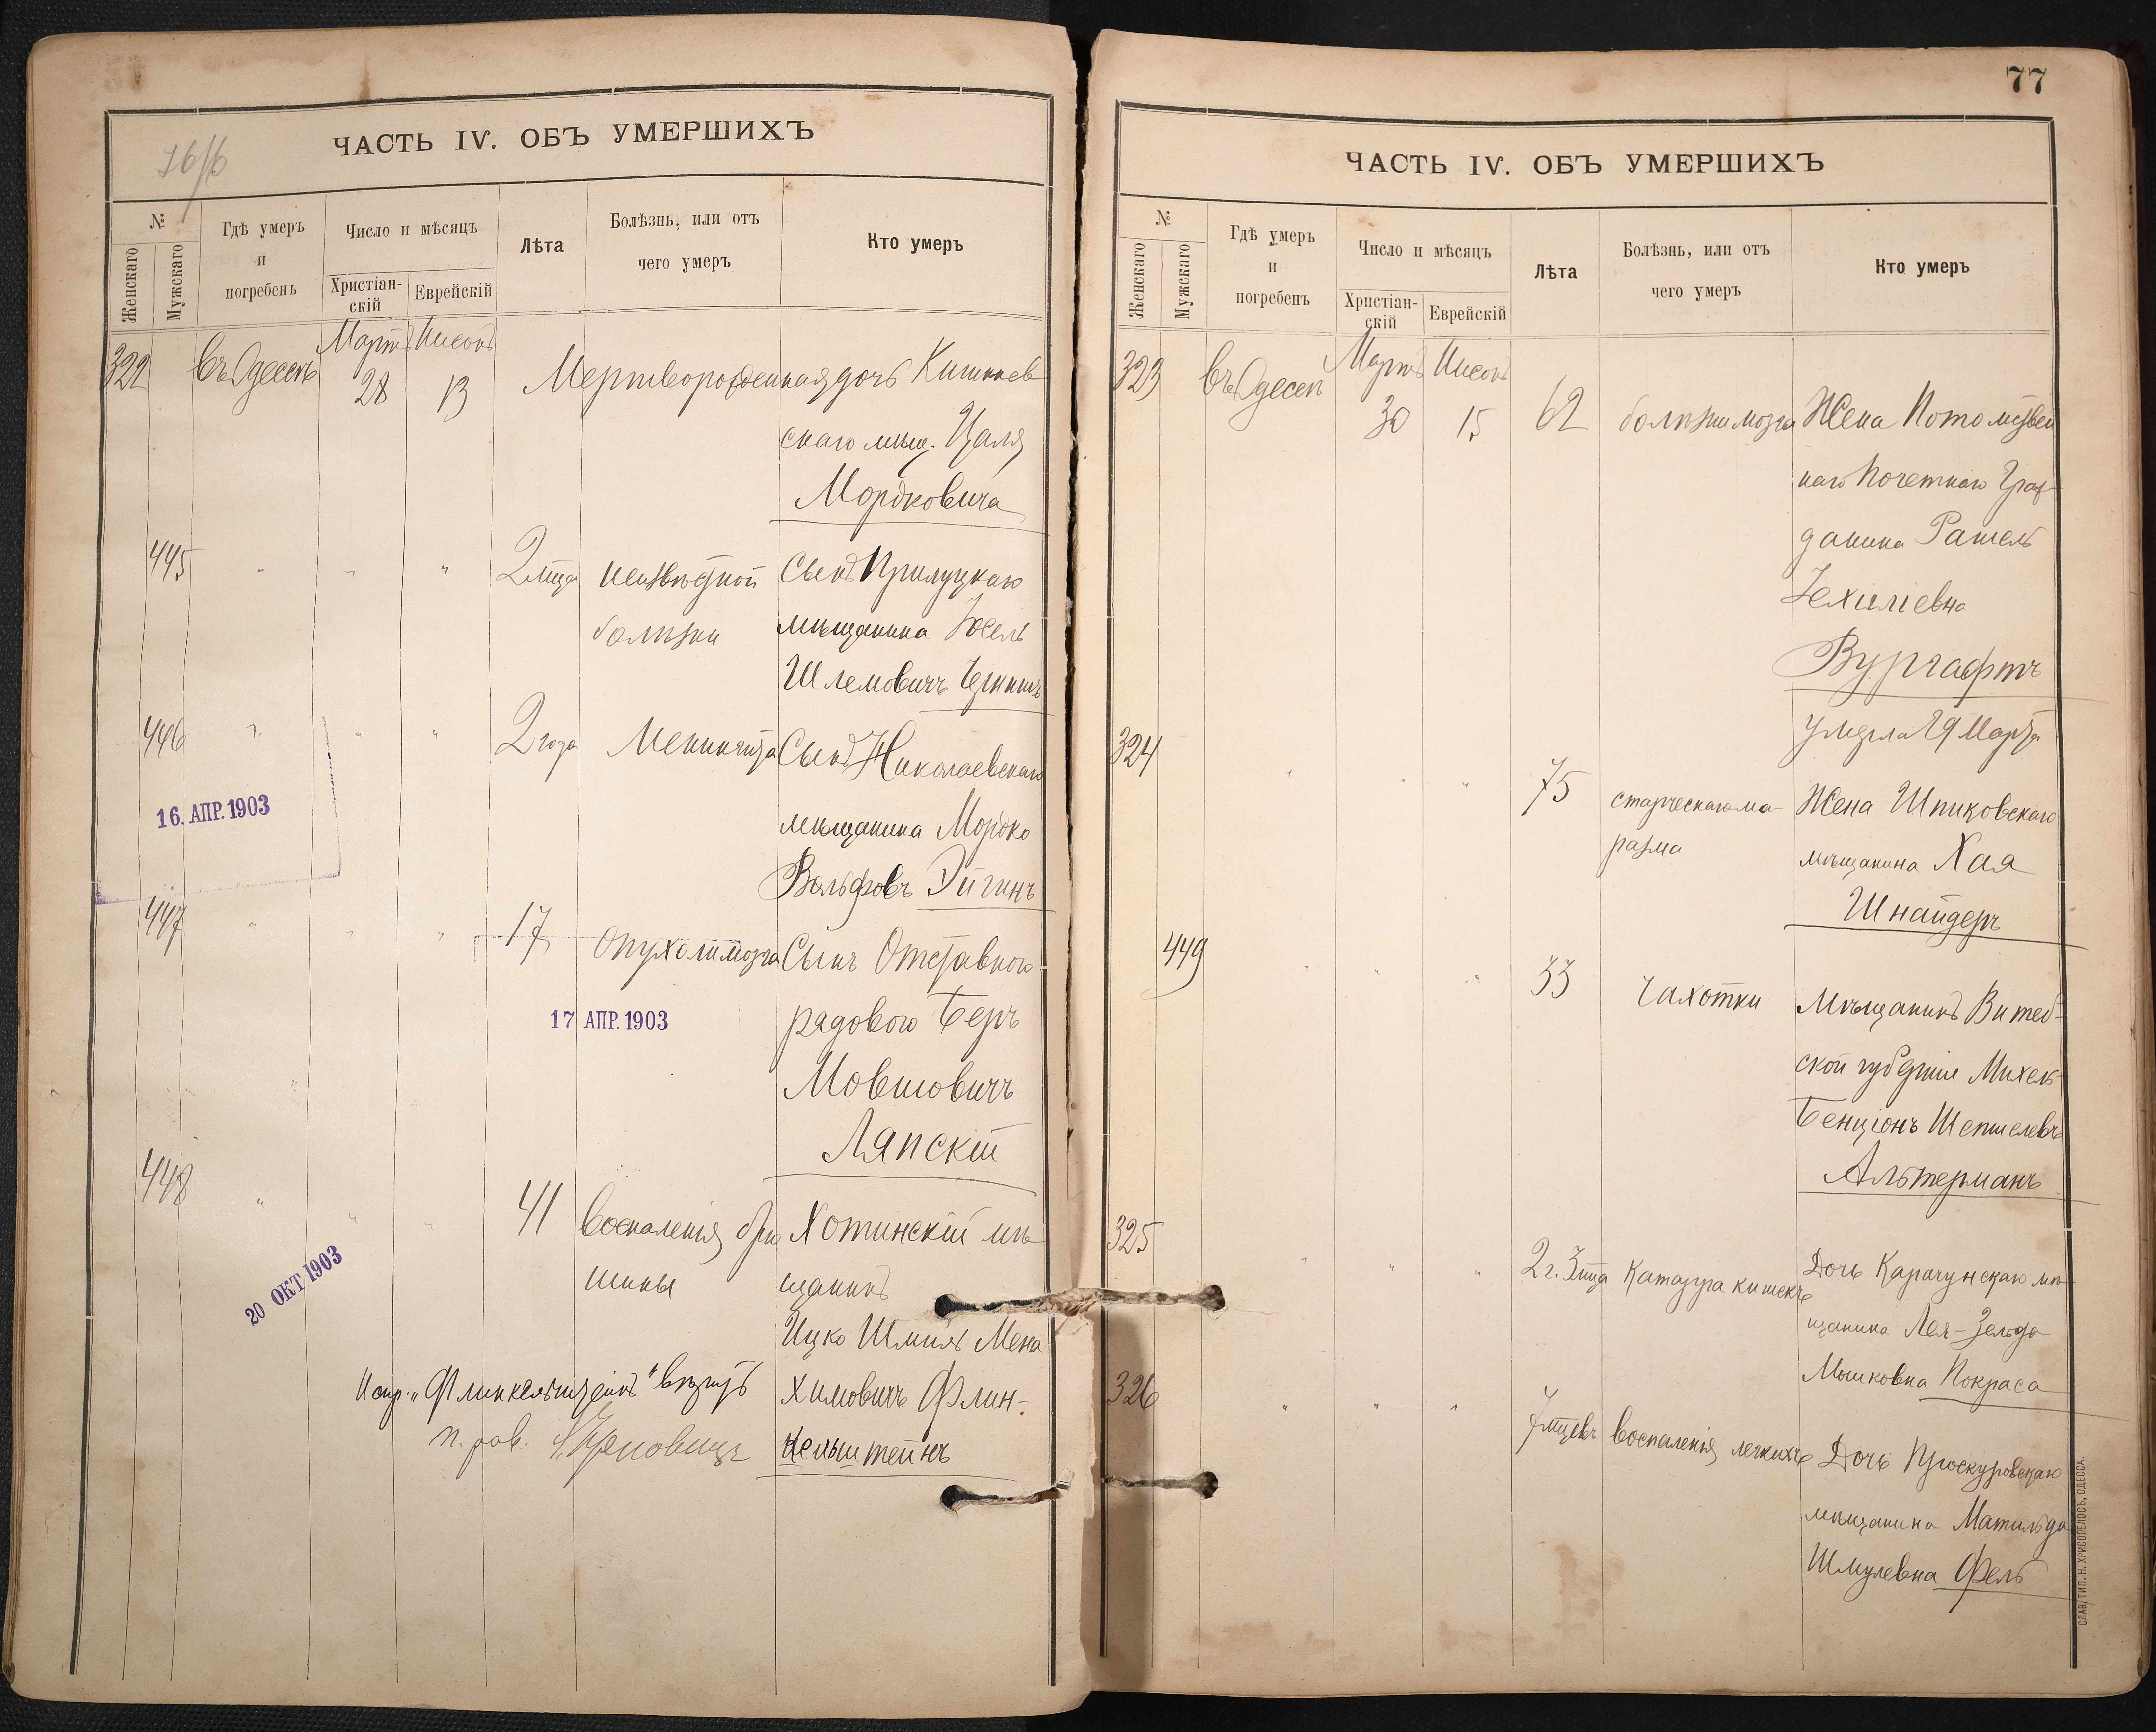 76/б
ЧАСТЬ IV. ОБЪ УМЕРШИХЪ
№
Женскаго
Мужскаго
Гдѣ умеръ
и
погребенъ
Число и мѣсяцъ
Христіан-
скій
Еврейскій
Лѣта
Болѣзнь, или отъ
чего умеръ
Кто умеръ
322 въ Одессѣ Мартъ Нисонъ
28 13 Мертворожденная дочь Кишинев
скаго мѣщ. Цаля
Мордковича
445 " " " 2 мѣца неизвѣстной Сынъ Прилуцкаго
болѣзни мѣщанина Іосель
Шлемовичъ
446 " " " 2 года Менингита Сынъ Николаевскаго
16. АПР. 1903
мѣщанина Мордко
Вольфовъ Эйгинъ
447 " " " 17 Опухоли мозга Сынъ Отставного
17 АПР. 1903
рядового Беръ
Мовшовичъ
Ляпскій
448 " " " 41 Воспаленія брю Хотинскій мѣ
шины щанинъ
20 ОКТ 1903
Ицко Шмиль Мена
Испр. „Флинкельштейнъ" вѣрить
химовичъ Флин-
п. рав.
кельштейнъ
77
ЧАСТЬ IV. ОБЪ УМЕРШИХЪ
№
Женскаго
Мужскаго
Гдѣ умеръ
и
погребенъ
Число и мѣсяцъ
Христіан-
скій
Еврейскій
Лѣта
Болѣзнь, или отъ
чего умеръ
Кто умеръ
323 въ Одессѣ Мартъ Нисонъ
30 15 62 болѣзни мозга Жена Потомствен
наго Почетнаго Граж-
данина Рашель
Іехиліевна
Вургафтъ
умерла 29 Марта
324 " " " 75 старческаго ма- Жена Шпиковскаго
разма мѣщанина Хая
Шнайдеръ
449 " " " 33 Чахотки Мѣщанинъ Витеб-
ской губерніи Михель
Бенціонъ Шепшелевъ
Альтерманъ
325 " " " 2 г. 3 мѣца Катарра кишекъ Дочь Карачунскаго мѣ-
щанина Лея-Зельда
Мошковна Покраса
326 " " " 7 мѣцевъ воспаленія легкихъ Дочь Проскуровскаго
мѣщанина Матильда
Шмулевна Фель
СЛАВ. ТИП. Н. ХРИСОГЕЛОСЪ, ОДЕССА.